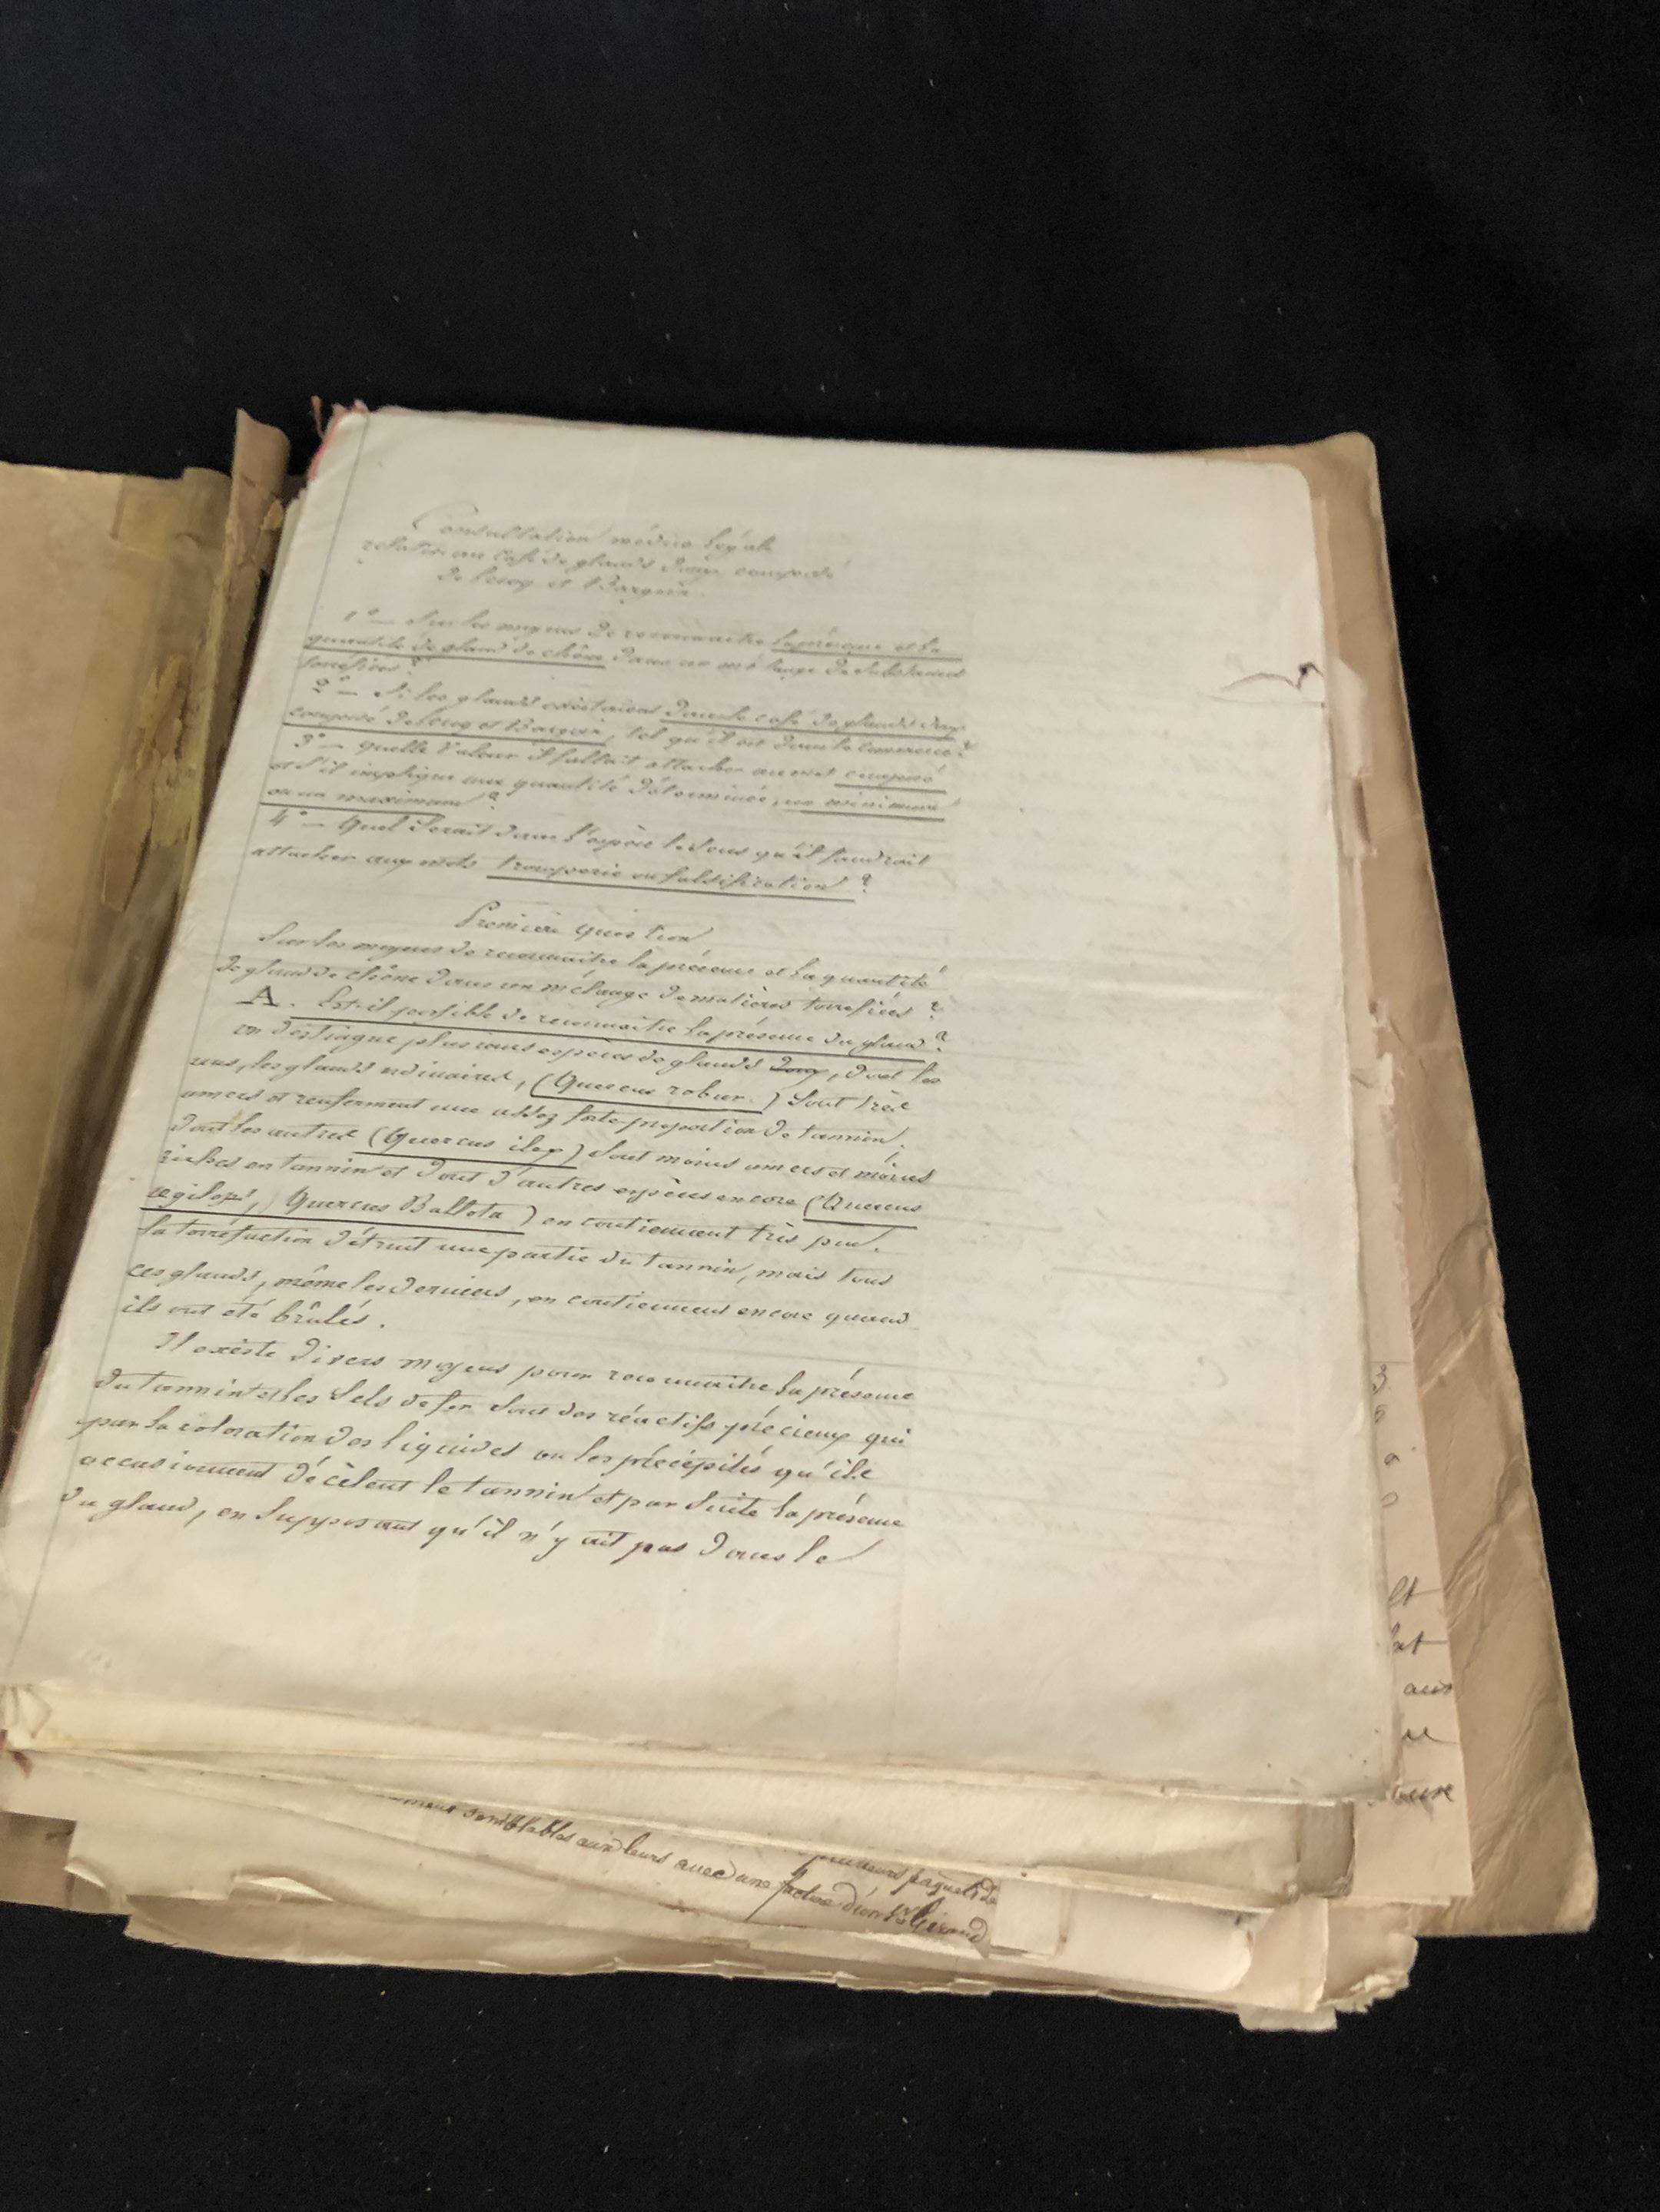 Consultation médico-légale
relative au Café de glands doux composé
de Lecoq et Bargoin.
1° — Sur les moyens de reconnaitre la présence et la
quantité de gland de chêne dans un mélange de substances
torréfiées ?
2° — Si les glands existaient dans le café de glands doux
composé de Lecoq et Bargoin, tel qu'il est dans le commerce ?
3° — quelle valeur il fallait attacher au mot composé
et s'il implique une quantité déterminée, un minimum
ou un maximum ?
4° — Quel serait dans l'espèce le sens qu'il faudrait
attacher aux mots tromperie ou falsification ?
Première question
Sur les moyens de reconnaitre la présence et la quantité
de gland de chêne dans un mélange de matières torréfiées ?
A. Est-il possible de reconnaitre la présence du gland ?
on distingue plusieurs espèces de glands doux, dont les
uns, les glands ordinaires, (Quercus robur.) sont très
amers et renferment une assez forte proportion de tannin,
dont les autres (Quercus ilex) sont moins amers et moins
riches en tannin et dont d'autres espèces encore (Quercus
ægilops, Quercus Ballota) en contiennent très peu.
la torréfaction détruit une partie du tannin, mais tous
ces glands, même les derniers, en contiennent encore quand
ils ont été brûlés.
Il existe divers moyens pour reconnaitre la présence
du tannin et les sels de fer sont des réactifs précieux qui
par la coloration des liquides ou les précipités qu'ils
occasionnent décèlent le tannin et par suite la présence
du gland, en supposant qu'il n'y ait pas dans le
3
6
a
lt
lat
aus
plusieurs paquets de
semblables aux leurs avec une facture d'un Sr Girand